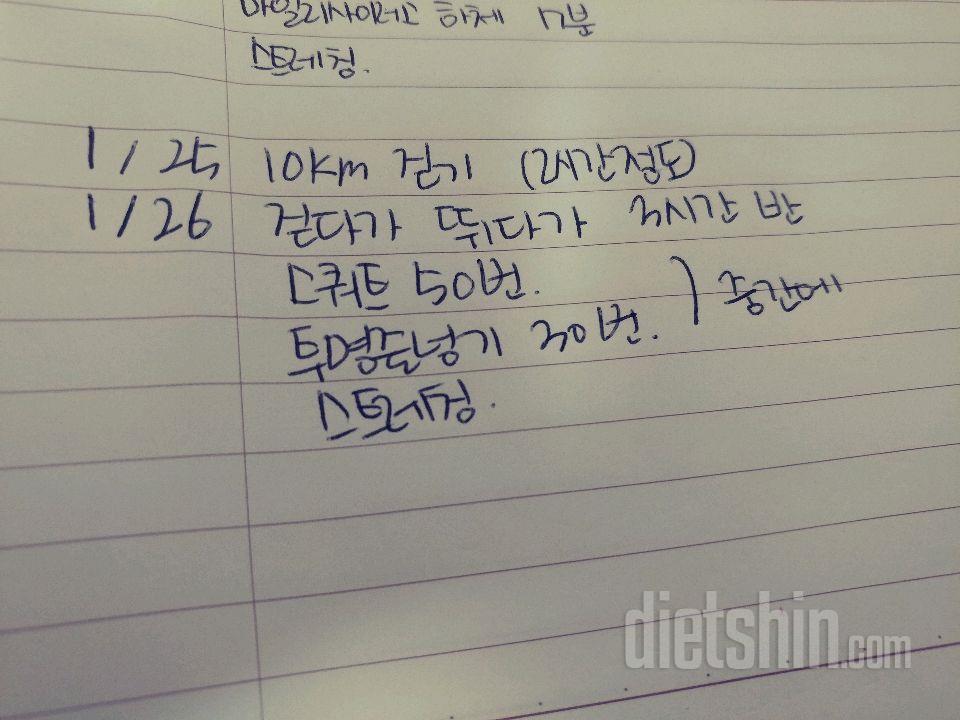 마일리사이러스 하체 7분
스트레칭.
1/25 10km 걷기 (2시간정도)
1/26 걷다가 뛰다가 3시간 반
스쿼트 50번.
투명줄넘기 30번. ) 중간에
스트레칭.
dietshin.com